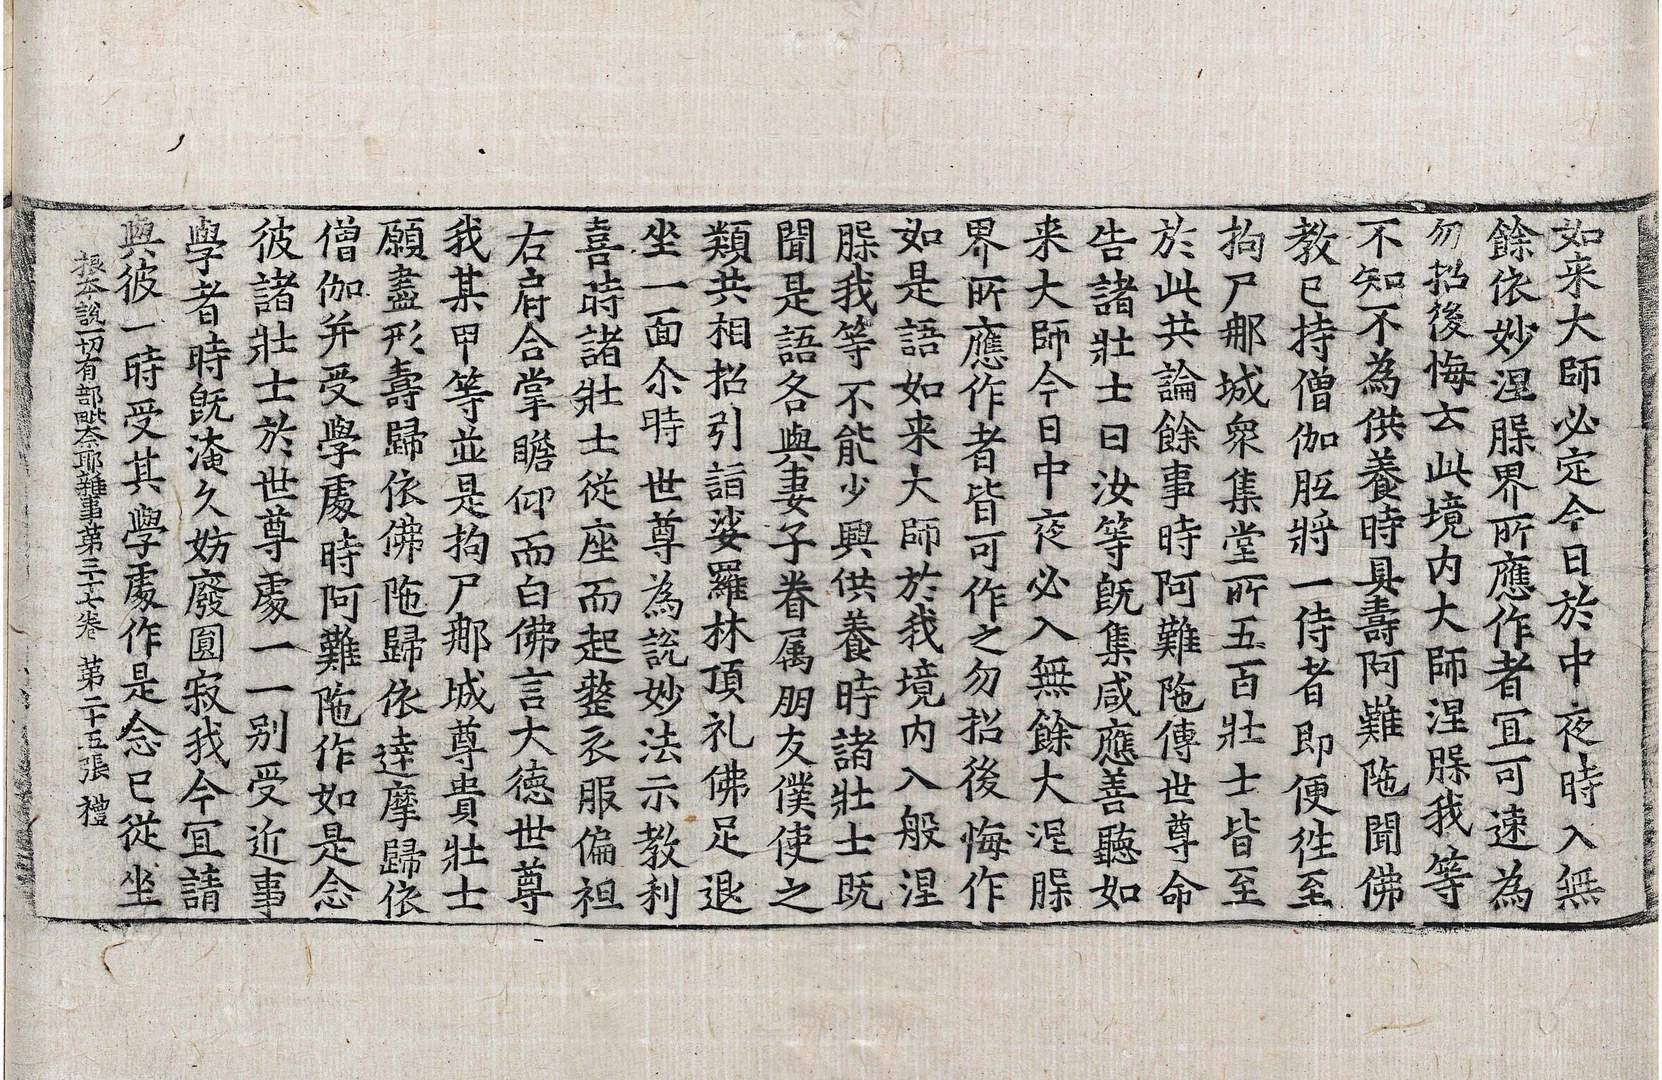 如来大師必定今日於中夜時入無
餘依妙涅槃界所應作者冝可速為
勿招後悔云此境内大師涅槃我等
不知不為供養時具壽阿難陁聞佛
教已持僧伽胝將一侍者即便徃至
拘尸那城衆集堂所五百壯士皆至
於此共論餘事時阿難陁傳世尊命
告諸壯士曰汝等旣集咸應善聽如
来大師今日中夜必入無餘大涅槃
界所應作者皆可作之勿招後悔作
如是語如来大師於我境内入般涅
槃我等不能少興供養時諸壯士既
聞是語各與妻子眷属朋友僕使之
類共相招引詣娑羅林頂礼佛足退
坐一面尒時世尊為說妙法示教利
喜時諸壯士従座而起整衣服偏袒
右肩合掌瞻仰而白佛言大德世尊
我某甲等並是拘尸那城尊貴壯士
願盡形壽歸依佛陁歸依達摩歸依
僧伽并受學處時阿難陁作如是念
彼諸壯士於世尊處一一别受近事
學者時旣淹久妨廢圓寂我今冝請
與彼一時受其學處作是念已從坐
根本說一切有部毗奈耶雜事第三十七卷 第二十五張 禮